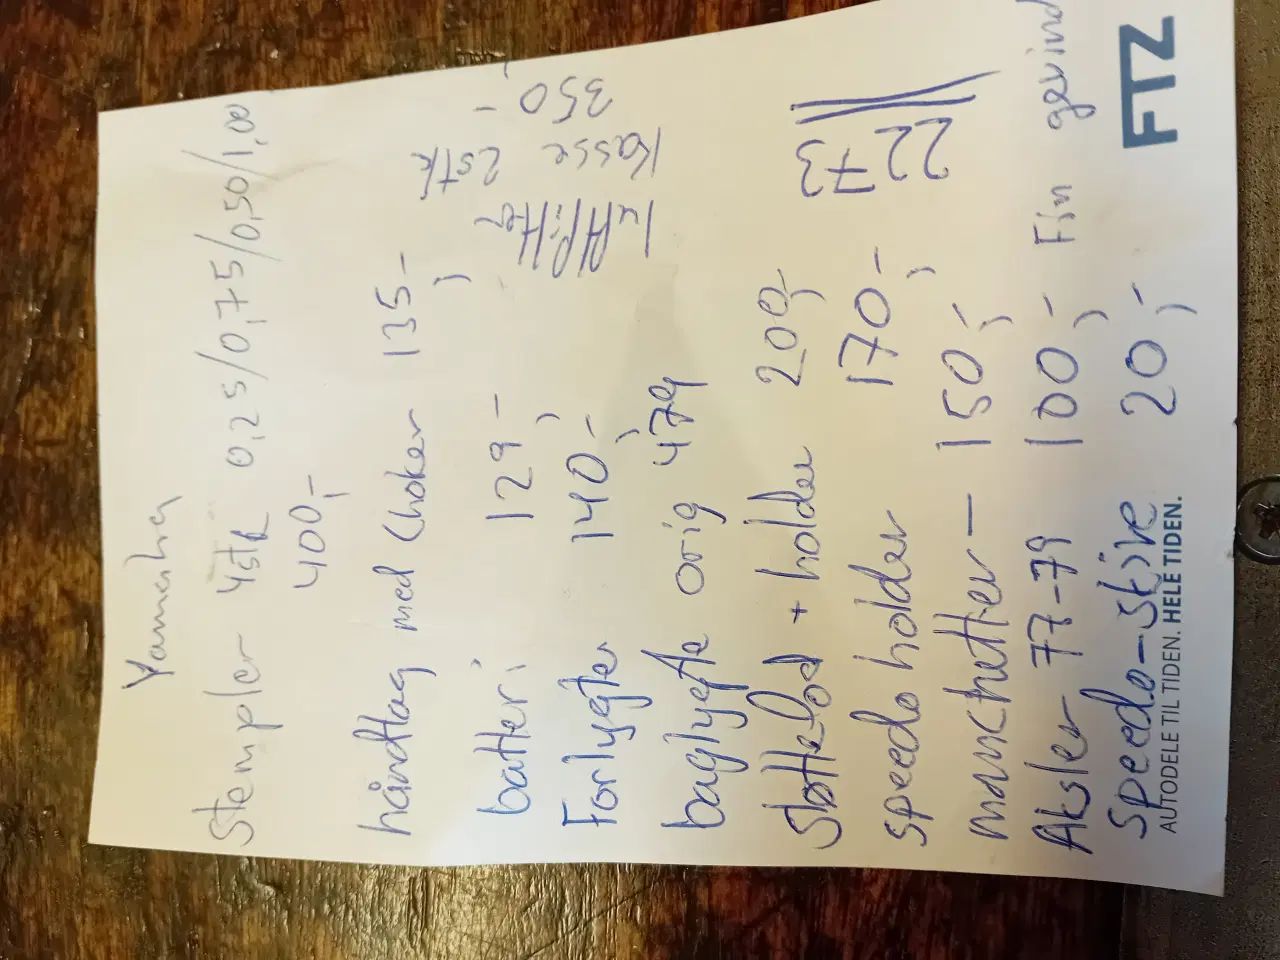 Yamaha
Stempler 4stk 0,25/0,75/0,50/1,00
400,-
håndtag med choker 135,-
2stk
batteri 129,-
Forlygter 140,-
Kasse
350,-
baglygte orig 479
Støttefod + holder 200,-
speedo holder 170,-
manchetter - 150,-
Aksler 77-79 100,- Fin gevind
speedo-skive 20,-
2273
AUTODELE TIL TIDEN. HELE TIDEN.
FTZ